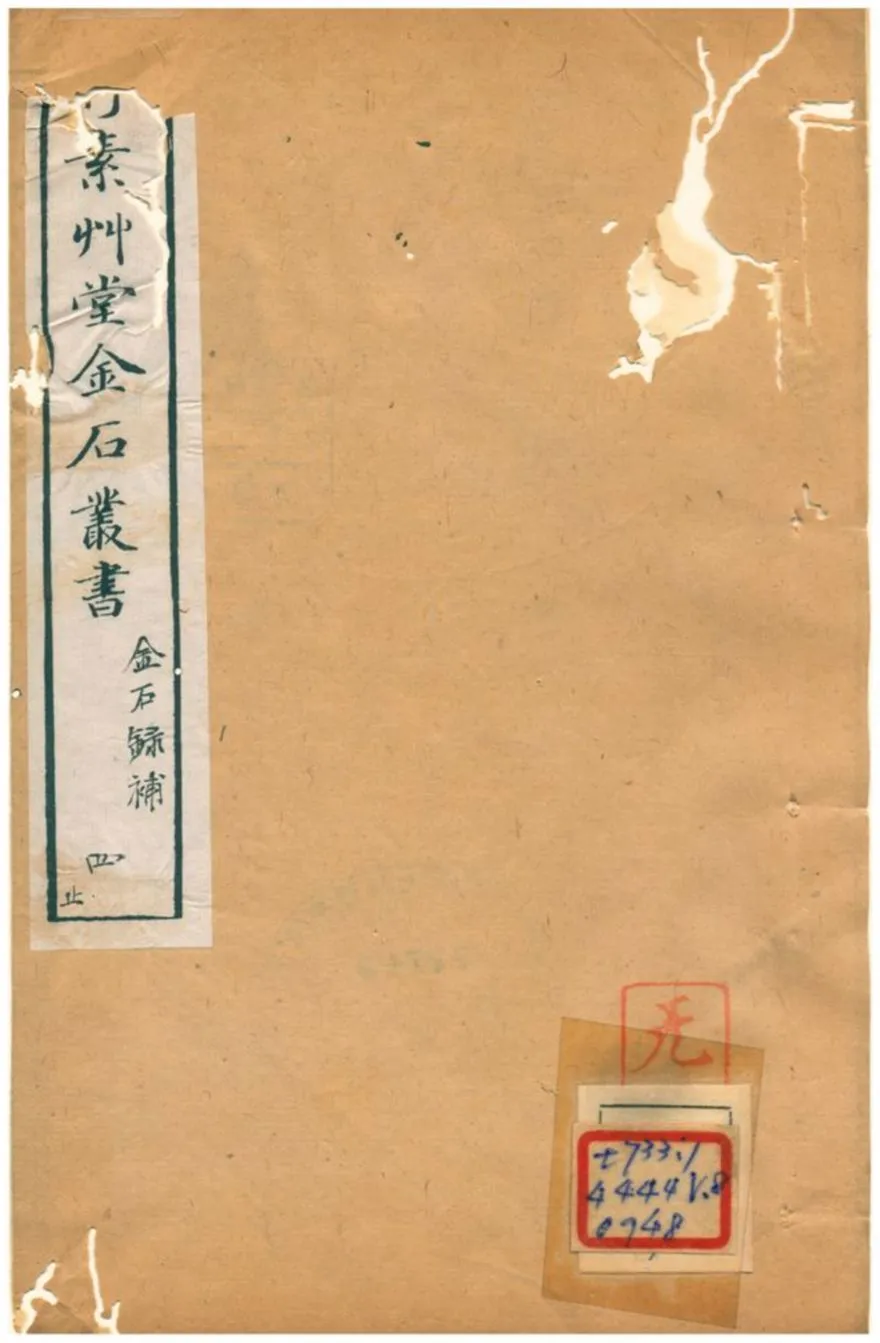 素艸堂金石叢書
金石録補
四
止
t733:1
4444 V.8
0948